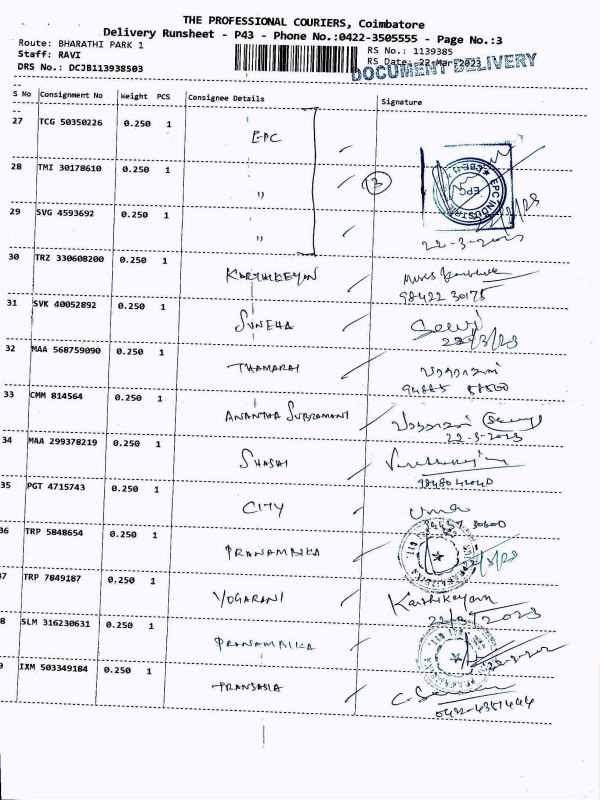 THE PROFESSIONAL COURIERS, Coimbatore
Delivery Runsheet - P43 - Phone No.:0422-3505555 - Page No.:3
Route: BHARATHI PARK 1
RS No.: 1139385
Staff: RAVI
RS Date: 22-Mar-2023
DRS No.: DCJB113938503
DOCUMENT DELIVERY
S No Consignment No Weight PCS Consignee Details Signature
27 TCG 50350226 0.250 1 EPC
28 TMI 30178610 0.250 1 " 3
EPC
29 SVG 4593692 0.250 1 "
22-3-2023
30 TRZ 330608200 0.250 1 KARTHIKEYAN
98422 30175
31 SVK 40052892 0.250 1 SUNEHA Selvi
32 MAA 568759090 0.250 1 THAMARAI
33 CMM 814564 0.250 1 ANANTHA SUBRAMANI
22-3-2023
34 MAA 299378219 0.250 1 SHASHI
35 PGT 4715743 0.250 1 CITY Uma
36 TRP 5848654 0.250 1 PRANAMBIKA
7 TRP 7849187 0.250 1 YOGARANI Karthikeyan
22/3/2023
8 SLM 316230631 0.250 1 PRANAMBIKA
9 IXM 503349184 0.250 1 PRANSASIA
0422-4351444